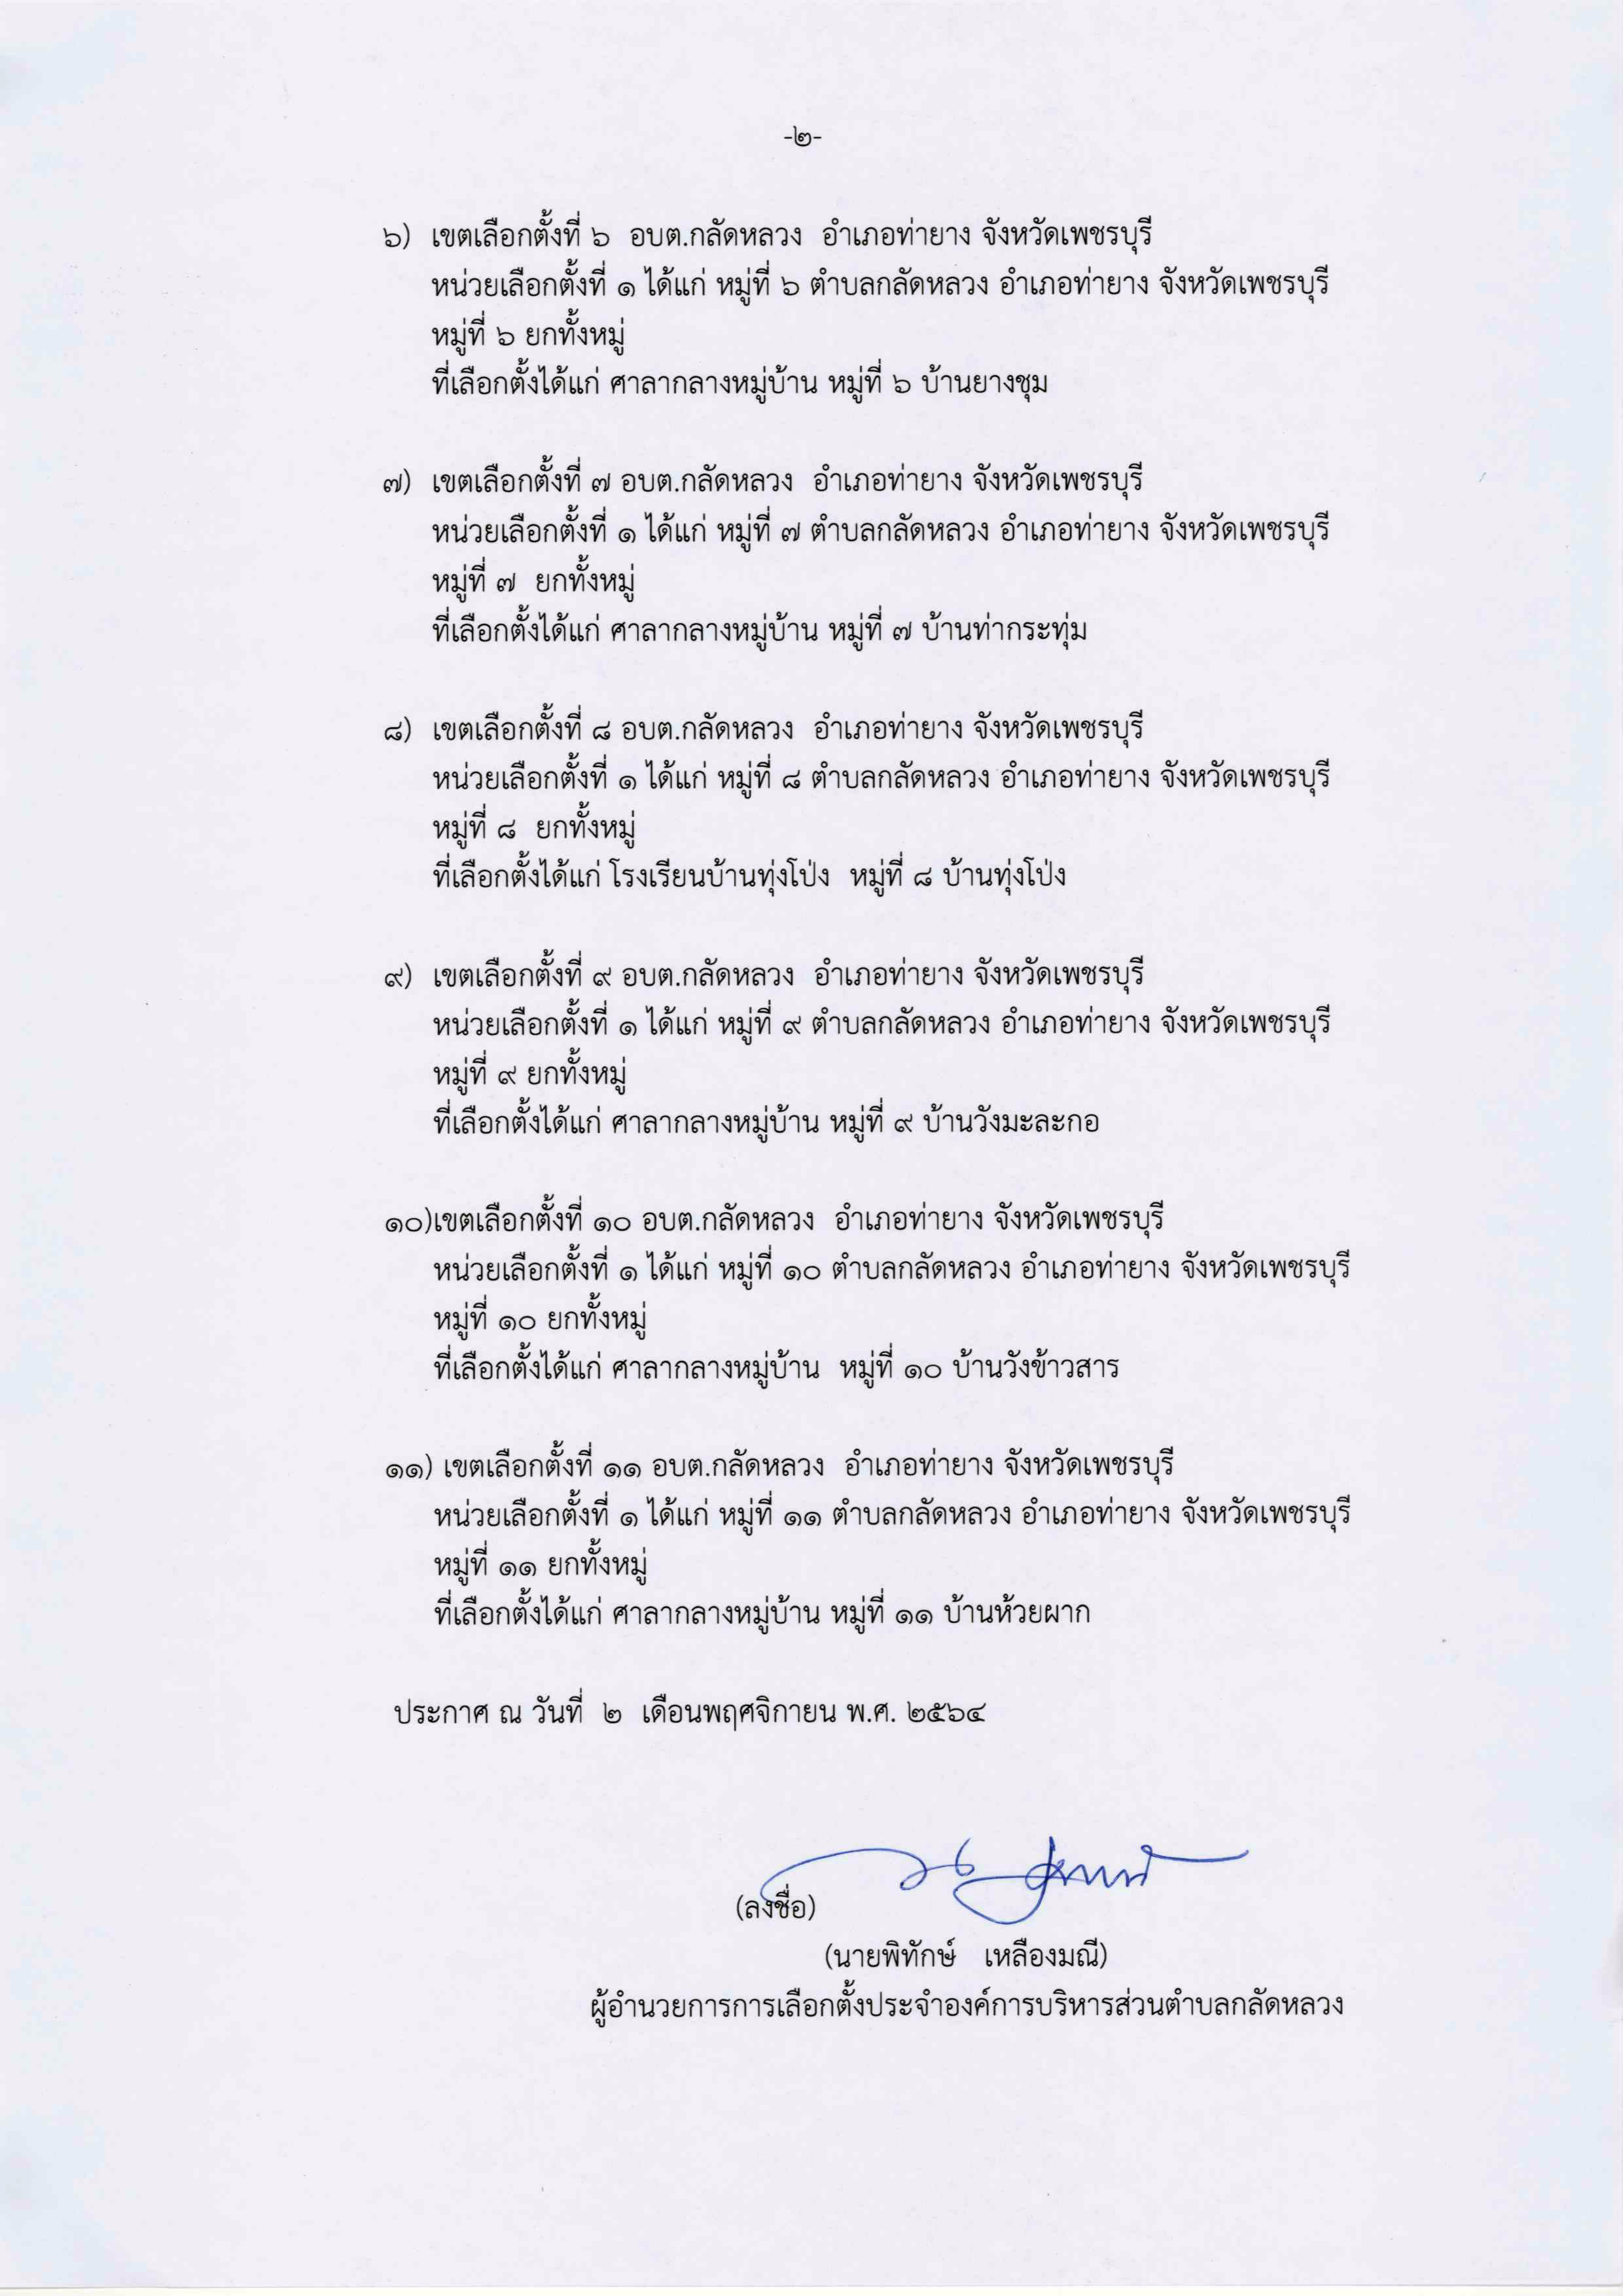 -๒-
๖) เขตเลือกตั้งที่ ๖ อบต.กลัดหลวง อำเภอท่ายาง จังหวัดเพชรบุรี
หน่วยเลือกตั้งที่ ๑ ได้แก่ หมู่ที่ ๖ ตำบลกลัดหลวง อำเภอท่ายาง จังหวัดเพชรบุรี
หมู่ที่ ๖ ยกทั้งหมู่
ที่เลือกตั้งได้แก่ ศาลากลางหมู่บ้าน หมู่ที่ ๖ บ้านยางชุม
๗) เขตเลือกตั้งที่ ๗ อบต.กลัดหลวง อำเภอท่ายาง จังหวัดเพชรบุรี
หน่วยเลือกตั้งที่ ๑ ได้แก่ หมู่ที่ ๗ ตำบลกลัดหลวง อำเภอท่ายาง จังหวัดเพชรบุรี
หมู่ที่ ๗ ยกทั้งหมู่
ที่เลือกตั้งได้แก่ ศาลากลางหมู่บ้าน หมู่ที่ ๗ บ้านท่ากระทุ่ม
๘) เขตเลือกตั้งที่ ๘ อบต.กลัดหลวง อำเภอท่ายาง จังหวัดเพชรบุรี
หน่วยเลือกตั้งที่ ๑ ได้แก่ หมู่ที่ ๘ ตำบลกลัดหลวง อำเภอท่ายาง จังหวัดเพชรบุรี
หมู่ที่ ๘ ยกทั้งหมู่
ที่เลือกตั้งได้แก่ โรงเรียนบ้านทุ่งโป่ง หมู่ที่ ๘ บ้านทุ่งโป่ง
๙) เขตเลือกตั้งที่ ๙ อบต.กลัดหลวง อำเภอท่ายาง จังหวัดเพชรบุรี
หน่วยเลือกตั้งที่ ๑ ได้แก่ หมู่ที่ ๙ ตำบลกลัดหลวง อำเภอท่ายาง จังหวัดเพชรบุรี
หมู่ที่ ๙ ยกทั้งหมู่
ที่เลือกตั้งได้แก่ ศาลากลางหมู่บ้าน หมู่ที่ ๙ บ้านวังมะละกอ
๑๐)เขตเลือกตั้งที่ ๑๐ อบต.กลัดหลวง อำเภอท่ายาง จังหวัดเพชรบุรี
หน่วยเลือกตั้งที่ ๑ ได้แก่ หมู่ที่ ๑๐ ตำบลกลัดหลวง อำเภอท่ายาง จังหวัดเพชรบุรี
หมู่ที่ ๑๐ ยกทั้งหมู่
ที่เลือกตั้งได้แก่ ศาลากลางหมู่บ้าน หมู่ที่ ๑๐ บ้านวังข้าวสาร
๑๑) เขตเลือกตั้งที่ ๑๑ อบต.กลัดหลวง อำเภอท่ายาง จังหวัดเพชรบุรี
หน่วยเลือกตั้งที่ ๑ ได้แก่ หมู่ที่ ๑๑ ตำบลกลัดหลวง อำเภอท่ายาง จังหวัดเพชรบุรี
หมู่ที่ ๑๑ ยกทั้งหมู่
ที่เลือกตั้งได้แก่ ศาลากลางหมู่บ้าน หมู่ที่ ๑๑ บ้านห้วยผาก
ประกาศ ณ วันที่ ๒ เดือนพฤศจิกายน พ.ศ. ๒๕๖๔
(ลงชื่อ)
(นายพิทักษ์ เหลืองมณี)
ผู้อำนวยการการเลือกตั้งประจำองค์การบริหารส่วนตำบลกลัดหลวง